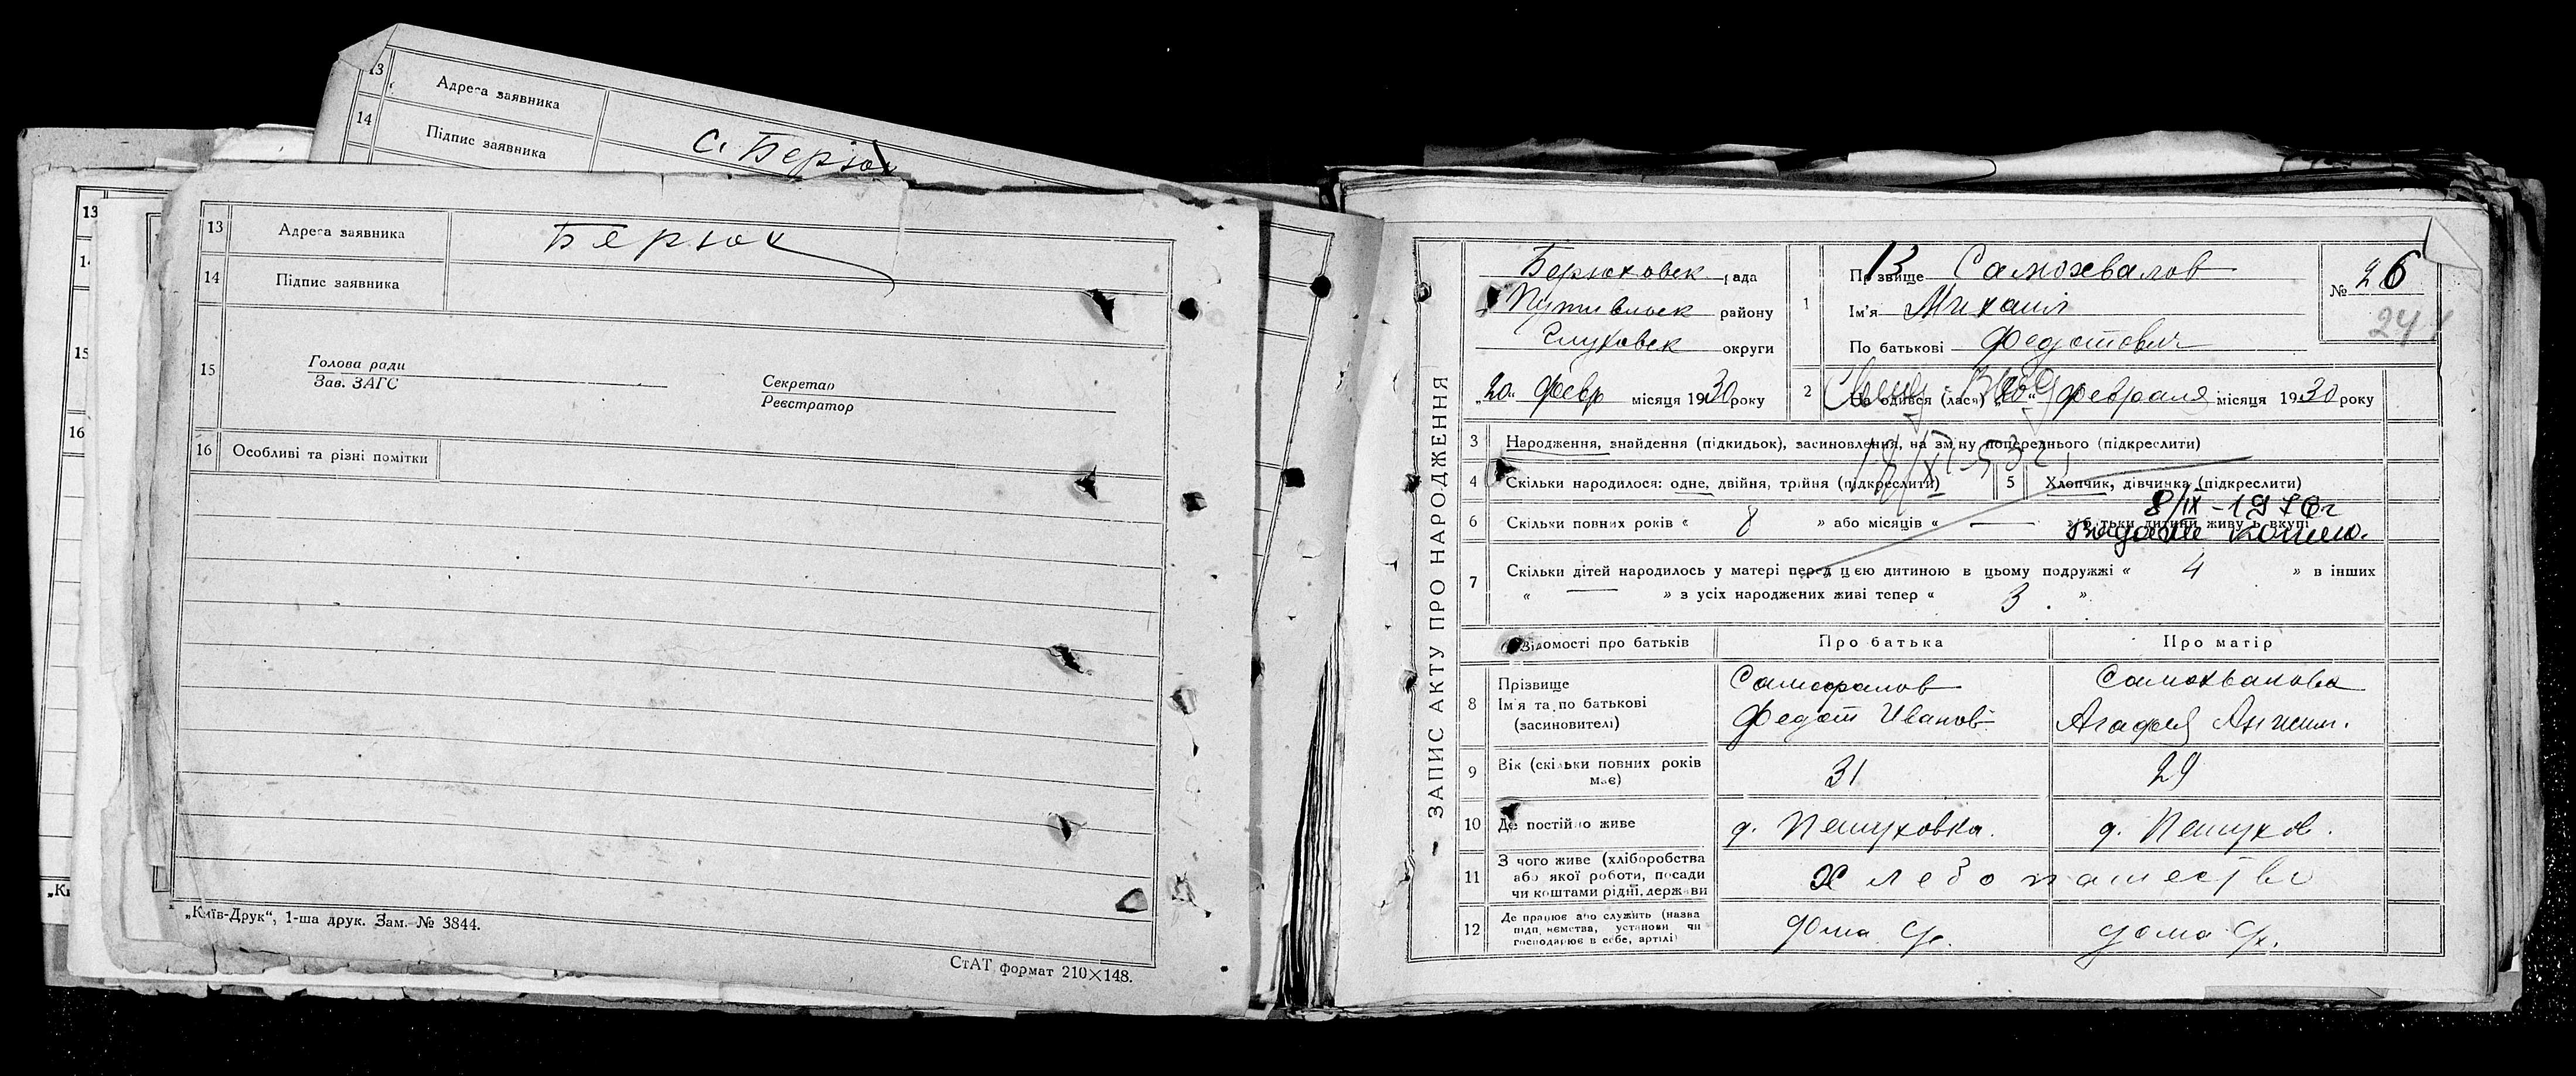 13 Адреса заявника
14 Підпис заявника
С. Берюх
13 Адреса заявника Берюх
14 Підпис заявника
15 Голова ради
Зав. ЗАГС
Секретар
Реєстратор
16 Особливі та різні помітки
„Київ-Друк“, 1-ша друк. Зам. № 3844.
СтАТ формат 210×148.
13
15
16
ЗАПИС АКТУ ПРО НАРОДЖЕННЯ
Берюховск рада
Путивльск району
Глуховск округи
„20“ февр місяця 1930 року
13
1 Прізвище Самохвалов
Ім'я Михаил
По батькові Федотович
№ 26
241
2 Народився (лася) „20“ февраля місяця 1930 року
3 Народження, знайдення (підкидьок), засиновлення, на зміну попереднього (підкреслити)
4 Скільки народилося: одне, двійня, трійня (підкреслити)
5 Хлопчик, дівчинка (підкреслити)
8/IX-1976г
6 Скільки повних років « 8 » або місяців « — » батьки дитини живуть вкупі
7 Скільки дітей народилось у матері перед цією дитиною в цьому подружжі « 4 » в інших
« — » з усіх народжених живі тепер « 3 . »
Відомості про батьків Про батька Про матір
8 Прізвище
Ім'я та по батькові
(засиновителі)
Федот Иванов
Самохвалова
Агафья
9 Вік (скільки повних років має) 31 29
10 Де постійно живе д. Пешуховка. д. Пешухов.
11 З чого живе (хліборобства або якої роботи, посади чи коштами рідні, держави Хлебопашество
12 Де працює або служить (назва підприємства, установи чи господарює в себе, артілі) дома дома